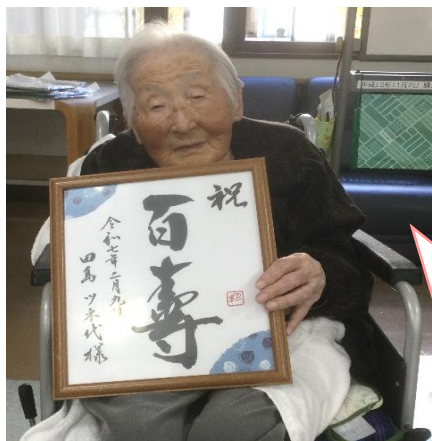 祝
百壽
令和七年二月九日
田島ツネ代様